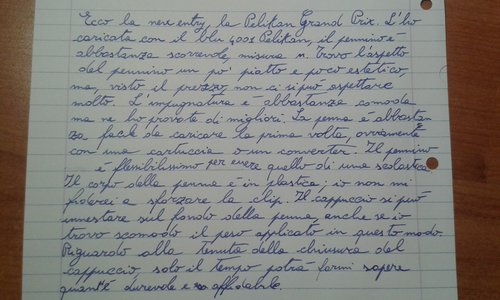 Ecco la new entry, la Pelikan Grand Prix. L'ho
caricata con il blu 4001 Pelikan, il pennino è
abbastanza scorrevole, misura M. Trovo l'aspetto
del pennino un po' piatto e poco estetico,
ma, visto il prezzo, non ci si può aspettare
molto. L'impugnatura è abbastanza comoda
ma ne ho provate di migliori. La penna è abbastan
za facile da caricare la prima volta, ovviamente
con una cartuccia o un converter. Il pennino
è flessibilissimo per essere quello di una scolastica
Il corpo della penna è in plastica; io non mi
fiderei a sforzare la clip. Il cappuccio si può
innestare sul fondo della penna, anche se io
trovo scomodo il peso applicato in questo modo.
Riguardo alla tenuta della chiusura del
cappuccio, solo il tempo potrà farmi sapere
quant'è durevole e affidabile.